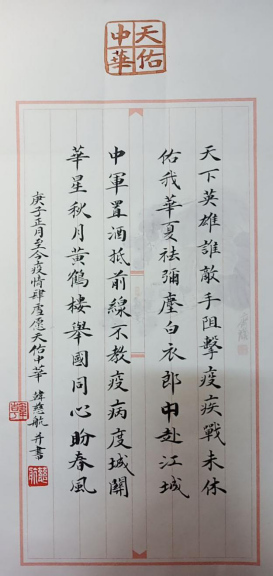 天佑
中華
天下英雄誰敵手阻擊疫疾戰未休
佑我華夏祛彌塵白衣郎中赴江城
中軍置酒抵前線不教疫病度城關
華星秋月黃鶴樓舉國同心盼春風
庚子正月至今疫情肆虐愿天佑中華 韓慈航并書